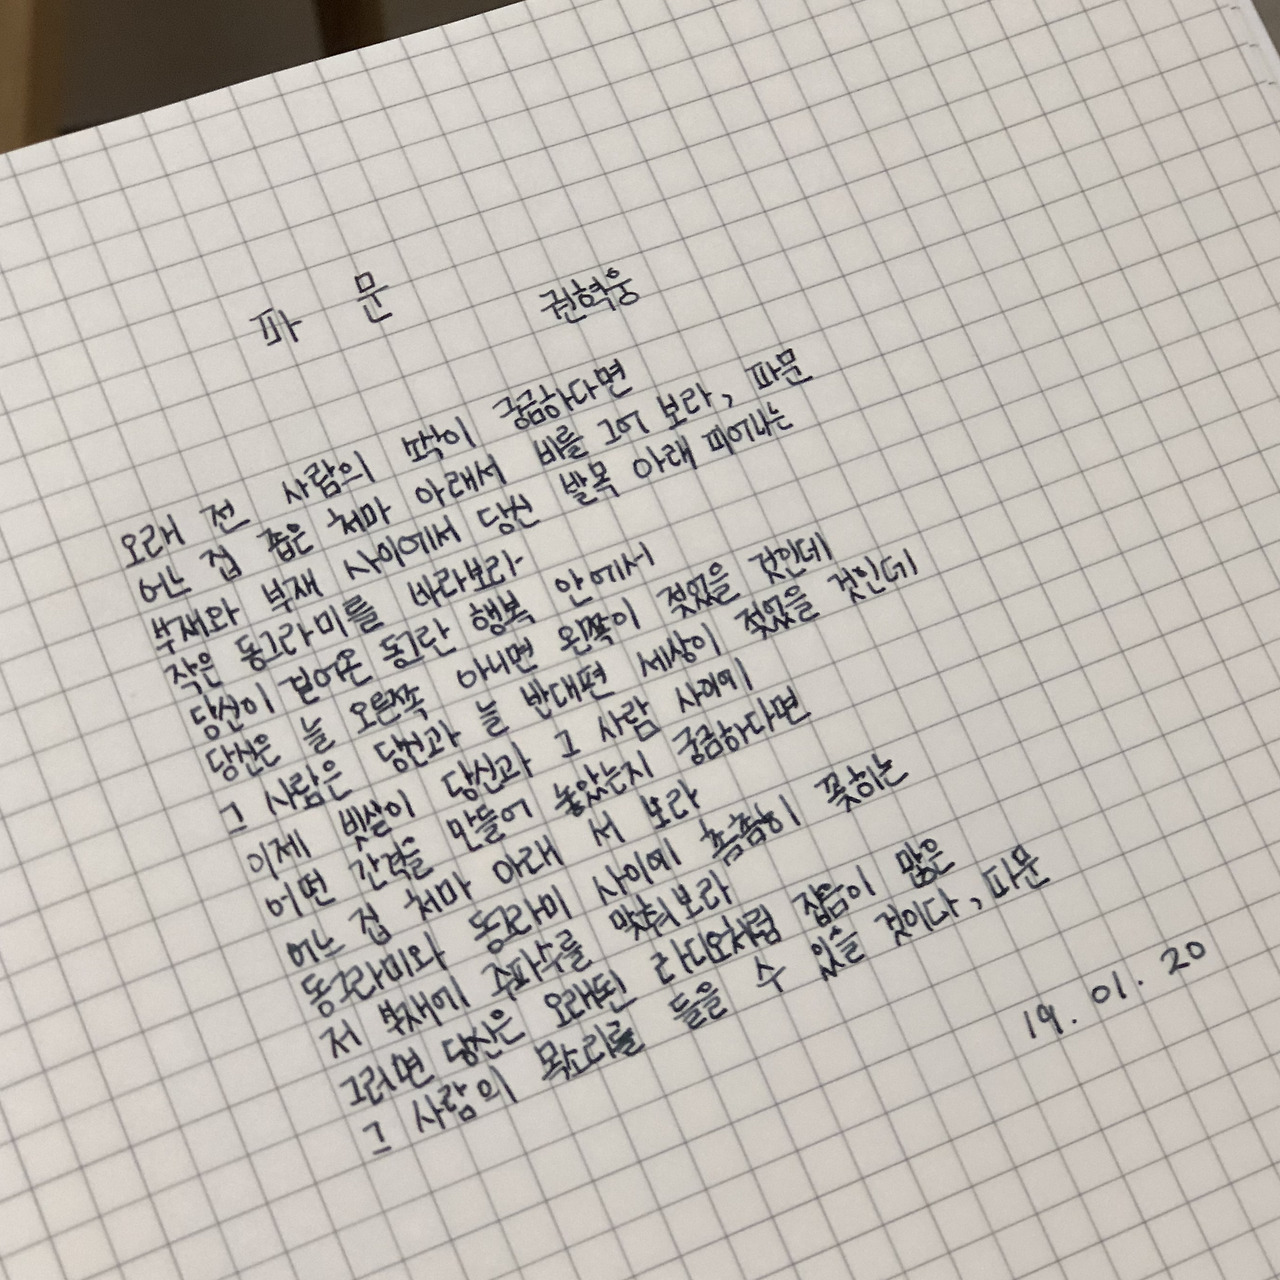 파 문 권혁웅
오래 전 사람의 딱이 궁금하다면
어느 집 좁은 처마 아래서 비를 그어 보라, 파문
부재와 부재 사이에서 당신 발목 아래 피어나는
작은 동그라미를 바라보라
당신이 걸어온 동그란 행복 안에서
당신은 늘 오른쪽 아니면 왼쪽이 젖었을 것인데
그 사람은 당신과 늘 반대편 세상이 젖었을 것인데
이제 빗살이 당신과 그 사람 사이에
어떤 간격을 만들어 놓았는지 궁금하다면
어느 집 처마 아래 서 보라
동그라미와 동그라미 사이에 촘촘히 꽂히는
저 부재에 주파수를 맞춰보라
그러면 당신은 오래된 라디오처럼 잡음이 많은
그 사람의 목소리를 들을 수 있을 것이다, 파문
19. 01. 20